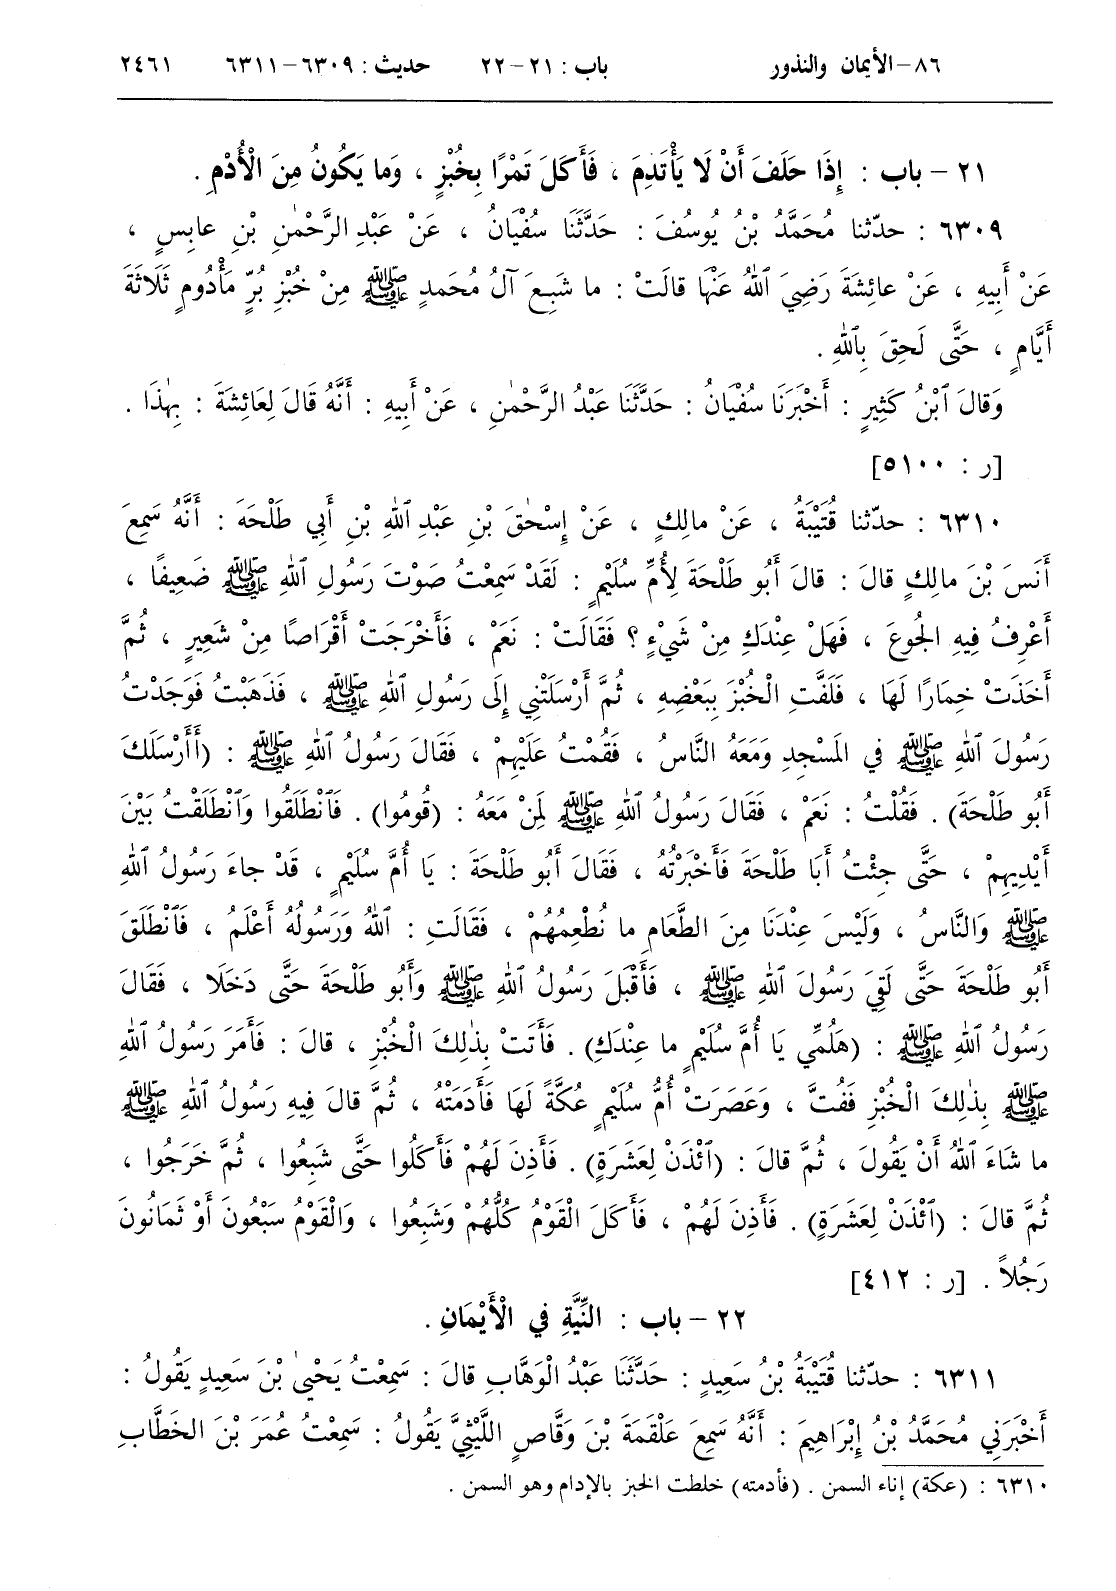 ٨٦-الأيمان والنذور باب : ٢١-٢٢ حديث : ٦٣٠٩-٦٣١١ ٢٤٦١
٢١ - باب : إِذَا حَلَفَ أَنْ لَا يَأْتَدِمَ ، فَأَكَلَ تَمْرًا بِخُبْزٍ ، وَما يَكُونُ مِنَ الْأُدْمِ .
٦٣٠٩ : حدّثنا مُحَمَّدُ بْنُ يُوسُفَ : حَدَّثَنَا سُفْيَانُ ، عَنْ عَبْدِ الرَّحْمٰنِ بْنِ عابِسٍ ،
عَنْ أَبِيهِ ، عَنْ عائِشَةَ رَضِيَ ٱللهُ عَنْهَا قالَتْ : ما شَبِعَ آلُ مُحَمدٍ ﷺ مِنْ خُبْزِ بُرٍّ مَأْدُومٍ ثَلَاثَةَ
أَيَّامٍ ، حَتَّى لَحِقَ بِٱللهِ .
وَقالَ ٱبْنُ كَثِيرٍ : أَخْبَرَنَا سُفْيَانُ : حَدَّثَنَا عَبْدُ الرَّحْمٰنِ ، عَنْ أَبِيهِ : أَنَّهُ قَالَ لِعَائِشَةَ : بِهٰذَا .
[ر : ٥١٠٠]
٦٣١٠ : حدّثنا قُتَيْبَةُ ، عَنْ مالِكٍ ، عَنْ إِسْحٰقَ بْنِ عَبْدِ ٱللهِ بْنِ أَبِي طَلْحَةَ : أَنَّهُ سَمِعَ
أَنَسَ بْنَ مالِكٍ قالَ : قالَ أَبُو طَلْحَةَ لِأُمِّ سُلَيْمٍ : لَقَدْ سَمِعْتُ صَوْتَ رَسُولِ ٱللهِ ﷺ ضَعِيفًا ،
أَعْرِفُ فِيهِ الجُوعَ ، فَهَلْ عِنْدَكِ مِنْ شَيْءٍ ؟ فَقَالَتْ : نَعَمْ ، فَأَخْرَجَتْ أَقْرَاصًا مِنْ شَعِيرٍ ، ثُمَّ
أَخَذَتْ خِمارًا لَهَا ، فَلَفَّتِ الْخُبْزَ بِبَعْضِهِ ، ثُمَّ أَرْسَلَتْنِي إِلَى رَسُولِ ٱللهِ ﷺ ، فَذَهَبْتُ فَوَجَدْتُ
رَسُولَ ٱللهِ ﷺ في المَسْجِدِ وَمَعَهُ النَّاسُ ، فَقُمْتُ عَلَيْهِمْ ، فَقَالَ رَسُولُ ٱللهِ ﷺ : (أَأَرْسَلَكَ
أَبُو طَلْحَةَ) . فَقُلْتُ : نَعَمْ ، فَقَالَ رَسُولُ ٱللهِ ﷺ لِمَنْ مَعَهُ : (قُومُوا) . فَٱنْطَلَقُوا وَٱنْطَلَقْتُ بَيْنَ
أَيْدِيهِمْ ، حَتَّى جِئْتُ أَبَا طَلْحَةَ فَأَخْبَرْتُهُ ، فَقَالَ أَبُو طَلْحَةَ : يَا أُمَّ سُلَيْمٍ ، قَدْ جاءَ رَسُولُ ٱللهِ
ﷺ وَالنَّاسُ ، وَلَيْسَ عِنْدَنَا مِنَ الطَّعَامِ ما نُطْعِمُهُمْ ، فَقَالَتِ : ٱللهُ وَرَسُولُهُ أَعْلَمُ ، فَٱنْطَلَقَ
أَبُو طَلْحَةَ حَتَّى لَقِيَ رَسُولَ ٱللهِ ﷺ ، فَأَقْبَلَ رَسُولُ ٱللهِ ﷺ وَأَبُو طَلْحَةَ حَتَّى دَخَلَا ، فَقَالَ
رَسُولُ ٱللهِ ﷺ : (هَلُمِّي يَا أُمَّ سُلَيْمٍ ما عِنْدَكِ) . فَأَتَتْ بِذٰلِكَ الْخُبْزِ ، قالَ : فَأَمَرَ رَسُولُ ٱللهِ
ﷺ بِذٰلِكَ الْخُبْزِ فَفُتَّ ، وَعَصَرَتْ أُمُّ سُلَيْمٍ عُكَّةً لَهَا فَأَدَمَتْهُ ، ثُمَّ قالَ فِيهِ رَسُولُ ٱللهِ ﷺ
ما شَاءَ ٱللهُ أَنْ يَقُولَ ، ثُمَّ قالَ : (ٱئْذَنْ لِعَشَرَةٍ) . فَأَذِنَ لَهُمْ فَأَكَلُوا حَتَّى شَبِعُوا ، ثُمَّ خَرَجُوا ،
ثُمَّ قالَ : (ٱئْذَنْ لِعَشَرَةٍ) . فَأَذِنَ لَهُمْ ، فَأَكَلَ الْقَوْمُ كُلُّهُمْ وَشَبِعُوا ، وَالْقَوْمُ سَبْعُونَ أَوْ ثَمَانُونَ
رَجُلاً . [ر : ٤١٢]
٢٢ - باب : النِّيَّةِ فِي الْأَيْمَانِ .
٦٣١١ : حدّثنا قُتَيْبَةُ بْنُ سَعِيدٍ : حَدَّثَنَا عَبْدُ الْوَهَّابِ قالَ : سَمِعْتُ يَحْيىٰ بْنَ سَعِيدٍ يَقُولُ :
أَخْبَرَنِي مُحَمَّدُ بْنُ إِبْرَاهِيمَ : أَنَّهُ سَمِعَ عَلْقَمَةَ بْنَ وَقَّاصٍ اللَّيْثِيَّ يَقُولُ : سَمِعْتُ عُمَرَ بْنَ الخَطَّابِ
٦٣١٠ : (عكة) إناء السمن . (فأدمته) خلطت الخبز بالإدام وهو السمن .